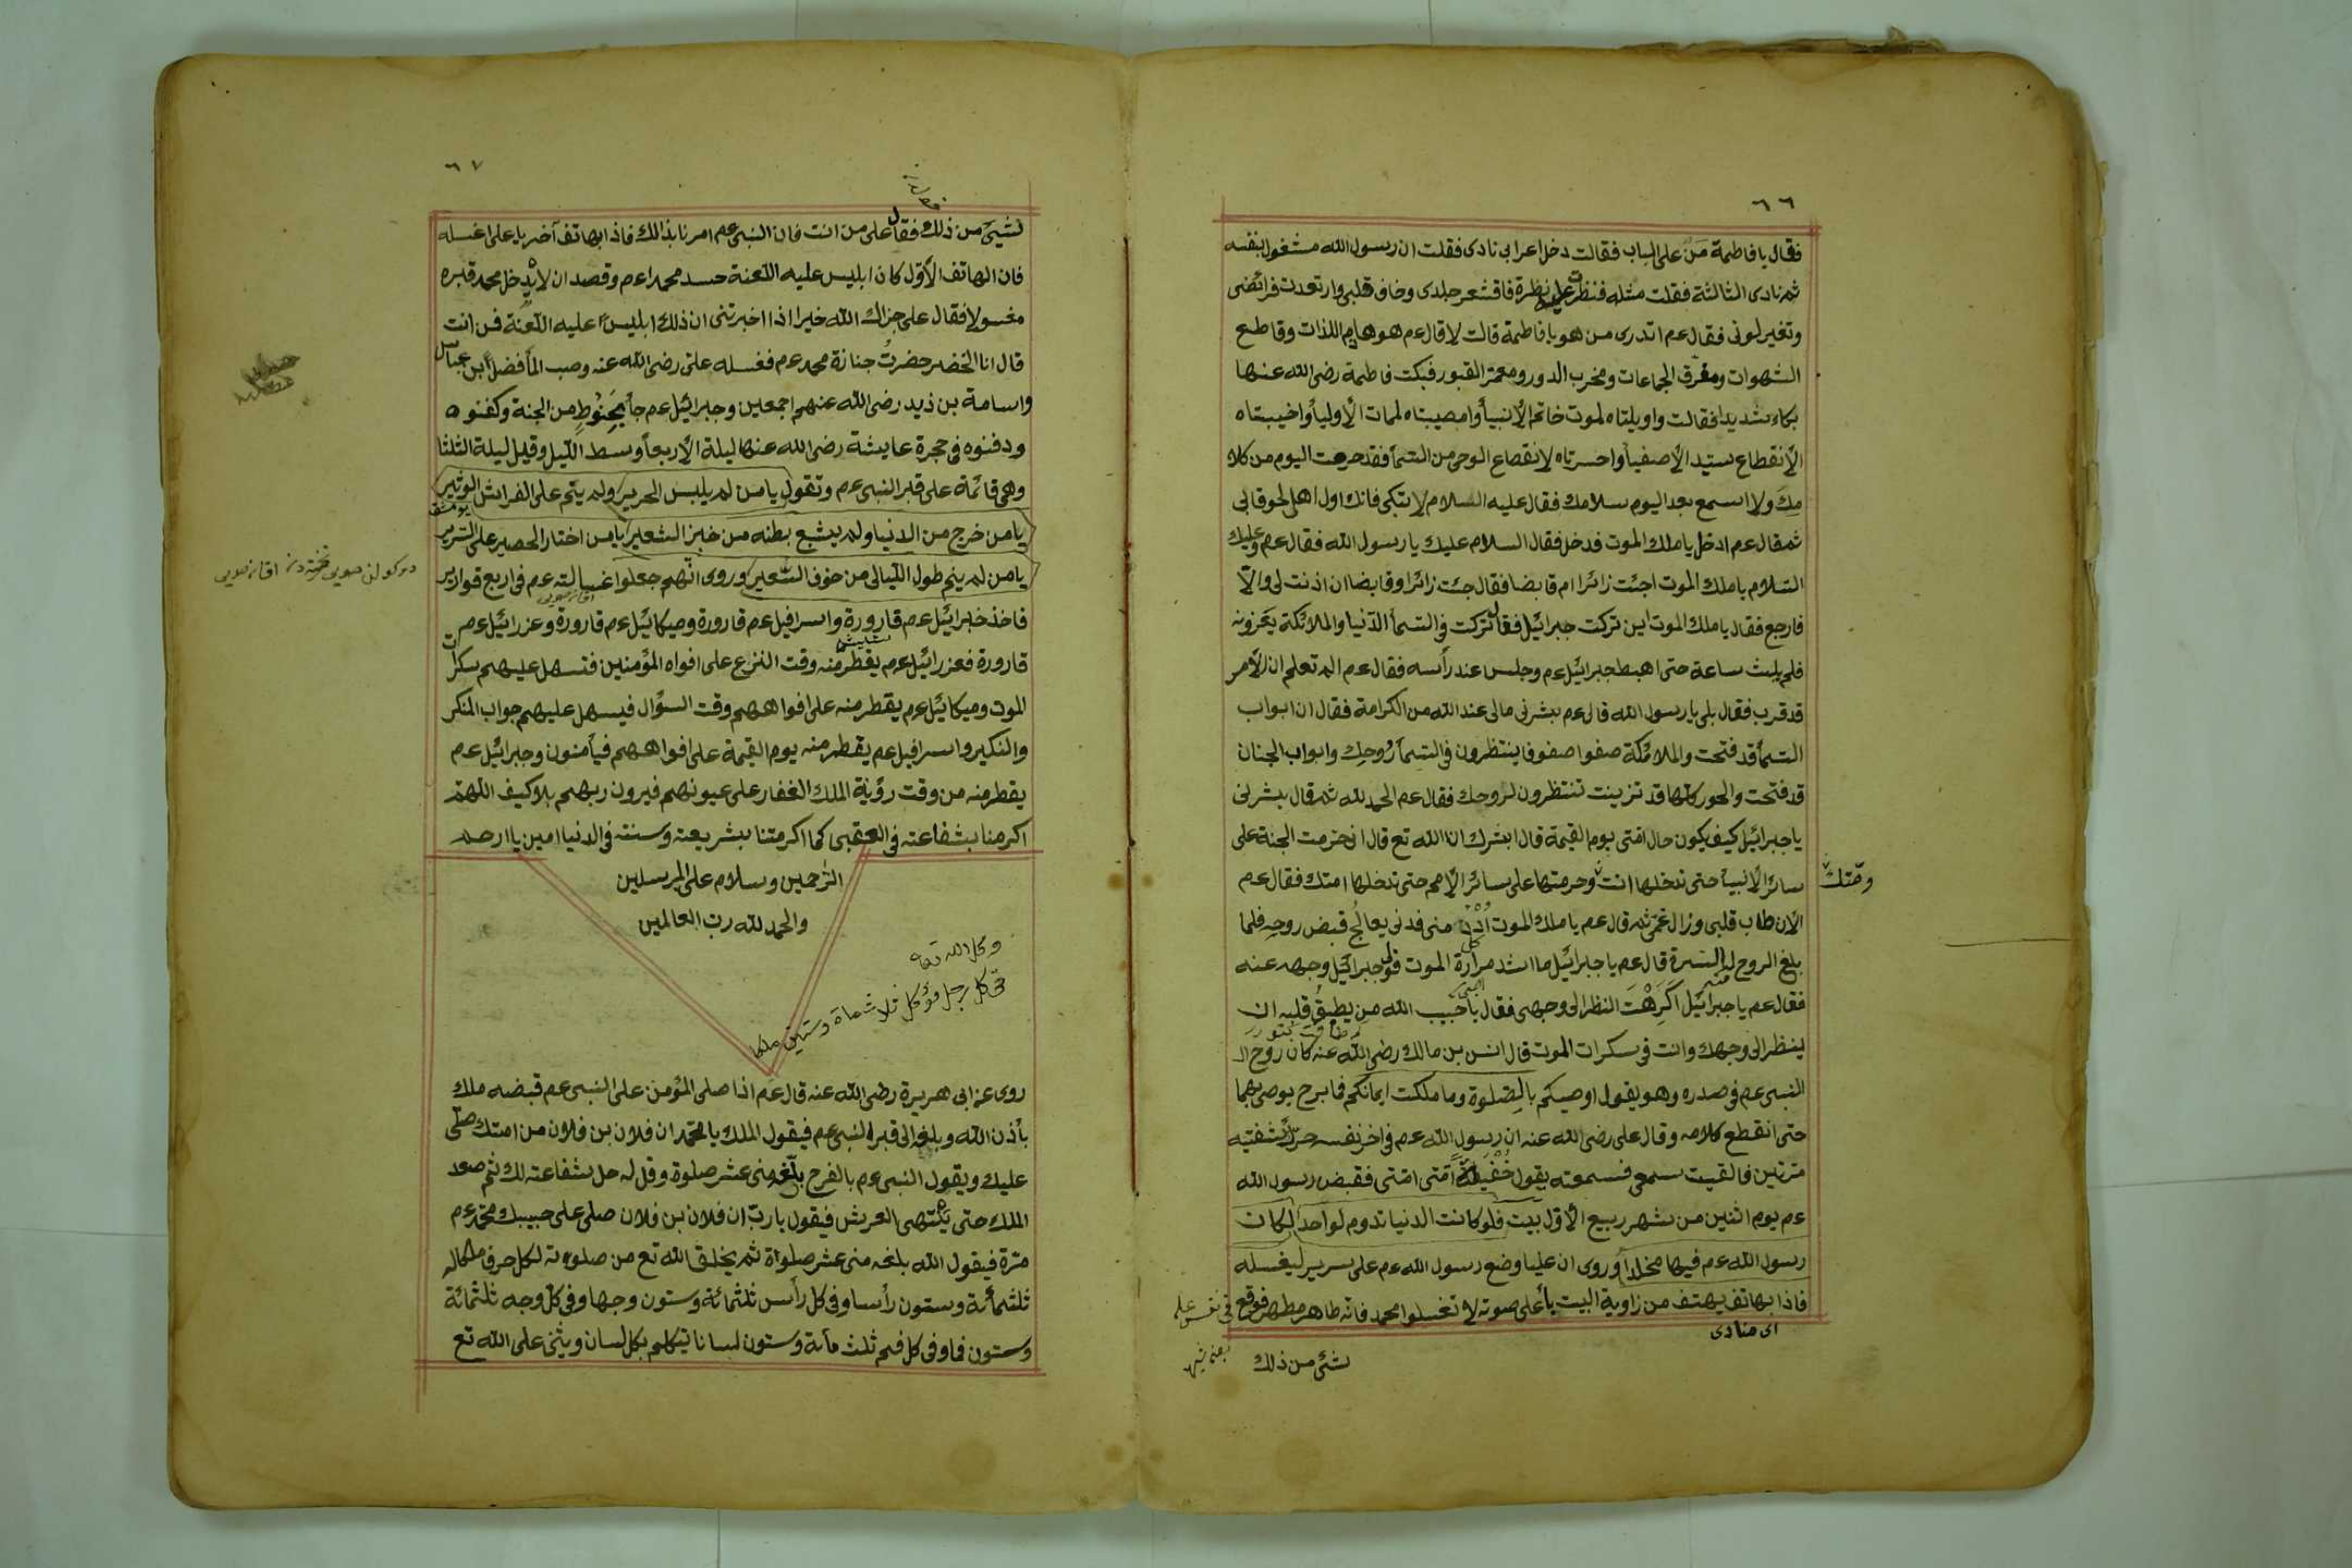 ٦٦
فقال يا فاطمة مَن على الباب فقالت دخل اعرابى نادى فقلت ان رسول الله مشغول بنفسه
ثم نادى الثالثة فقلت مثله فنظر على نظرة فاقشعر جلدى وخاف قلبى وارتعدت فرائضى
وتغير لونى فقال عم اتدرى من هو يا فاطمة قالت لا قال عم هو هادم اللذات وقاطع
الشهوات ومفرق الجماعات ومخرب الدور ومعمر القبور فبكت فاطمة رضى الله عنها
بكاء شديدا فقالت واويلتاه لموت خاتم الأنبيأ وامصيبتاه لممات الأوليأ واخيبتاه
الأنقطاع سيد الأصفيأ واحسرتاه لانقطاع الوحى من السمأ فقد حرمت اليوم من كلا
مِكَ ولا اسمع بعد اليوم سلامك فقال عليه السلام لا تبكى فانك اول اهلى لحوقا بى
ثم قال عم ادخل يا ملك الموت فدخل فقال السلام عليك يا رسول الله فقال عم وعليك
السلام يا ملك الموت اجئت زائرا ام قابضا فقال جئت زائرا وقابضا ان اذنت لى والّا
فارجع فقال يا ملك الموت اين تركت جبرائيل فقال تركت فى السمأ الدّنيا والملائكة يعَزونه
فلم يلبث ساعة حتى اهبط جبرائيل عم وجلس عند رأسه فقال عم الم تعلم ان الأمر
قد قرب فقال بلى يا رسول الله قال عم بشرنى مالى عند الله من الكرامة فقال ان ابواب
السمأ قد فتحت والملائكة صفوا صفوفا ينتظرون فى السمأ رُوحك وابواب الجنان
قد فتحت والحور كلها قد تزينت تنتظرون لروحك فقال عم الحمد لله ثم قال بشرنى
يا جبرائيل كيف يكون حال امّتى يوم القيمة قال ابشرك ان الله تع قال انى حرمت الجنة على
سائر الأنبيأ حتى تدخلها انت وحرمتها على سائر الأمم حتى تدخلها امتك فقال عم
الأن طاب قلبى وزال غمّى ثم قال عم يا ملك الموت اُدْنُ منى فدنى يعالجُ قبض روحِه فلما
بلغ الروح الى السرة قال عم يا جبرائيل ما اشد مرارة الموت فولى جبرائيل وجهه عنه
فقال عم يا جبرائيل اكَرِهْتَ النظر الى وجهى فقال يا حبيب الله من يطيقُ قلبه ان
ينظر الى وجهك وانت فى سكرات الموت قال انس بن مالك رضى الله عنه كان روح
النبى عم فى صدره وهو يقول اوصيكم بالصّلوة وما ملكت ايمانكم فما برح يوصى بهما
حتى انقطع كلامه وقال على رضى الله عنه ان رسول الله عم فى اخر نفسه حرّك شفتيه
مرّتين فالقيت سمعى فسمعته يقول خُفْيَةً امّتى امّتى فقبض رسول الله
عم يوم اثنين من شهر ربيع الأول بيت فلو كانت الدنيا تدوم لواحد لكان
رسول الله عم فيها مخلدا وروى ان عليا وضع رسول الله عم على سرير ليغسله
فاذا بهاتف يهتف من زاوية البيت بأعلى صوته لا تغسلوا محمد فانّه طاهر مطهر فوقع
فى نفس على
اى منادى
شئ من ذلك
٦٧
لشيئ من ذلك فقال على من انت فان النبى عم امرنا بذالك فاذا بهاتف آخر يا على اغسله
فان الهاتف الأوّل كان ابليس عليه اللعنة حسد محمدا عم وقصد ان لا يدخل محمد قبره
مغسولا فقال على جزاك الله خيرا اذا اخبرتنى ان ذلك ابليس عليه اللعنة فمن انت
قال انا الخضر حضرتُ جنازة محمد عم فغسله على رضى الله عنه وصب المأ فضل ابن عباس
واسامة بن زيد رضى الله عنهم اجمعين وجبرائيل عم جأ بحَنُوطٍ من الجنة وكفنوه
ودفنوه فى حجرة عايشة رضى الله عنها ليلة الأربعأ وسط الليل وقيل ليلة الثلثا
وهى قائمة على قبر النبى عم وتقول يا من لم يلبس الحرير ولم ينم على الفراش الوثير
يا من خرج من الدنيا ولم يشبع بطنه من خبز الشعير يا من اختار الحصير على السّرير
يا من لم ينم طول الليالى من خوف السّعير وروى انّهم جعلوا غسالته عم فى اربع قوارير
فاخذ جبرائيل عم قارورة واسرافيل عم قارورة وميكائيل عم قارورة وعزرائيل عم
قارورة فعزرائيل عم يقطر منه وقت النزع على افواه المؤمنين فتسهل عليهم سكرات
الموت وميكائيل عم يقطر منه على افواههم وقت السؤال فيسهل عليهم جواب المنكر
والنكير واسرافيل عم يقطر منه يوم القيمة على افواههم فيأمنون وجبرائيل عم
يقطر منه من وقت رؤية الملك الغفار على عيونهم فيرون ربهم بلا كيف اللهمّ
اكرمنا بشفاعته فى العقبى كما اكرمتنا بشريعته وسنته فى الدنيا امين يا ارحم
الرّحمين وسلام على المرسلين
والحمد لله رب العالمين
وكل الله تعا
كل رجل ثلاثماة وستين ملكا
روى عن ابى هريرة رضى الله عنه قال عم اذا صلى المؤمن على النبى عم قبضه ملك
بأذن الله وبلغه الى قبر النبى عم فيقول الملك يا محمّد ان فلان بن فلان من امتك صلّى
عليك ويقول النبى عم بالفرح بلّغه منى عشر صلوة وقل له حل شفاعته لك ثم صعد
الملك حتى ينتهى العرش فيقول يا ربّ ان فلان بن فلان صلى على حبيبك محمّد عم
مرّة فيقول الله بلغه منى عشر صلواة ثم يخلق الله تع من صلوته لكل حرف ملكا له
ثلثمأئة وستون رأسا وفى كل رأس ثلثمائة وستون وجها وفى كلّ وجه ثلثمائة
وستون فما وفى كل فم ثلث مأئة وستون لسانا تيكلم بكل لسان ويثنى على الله تع